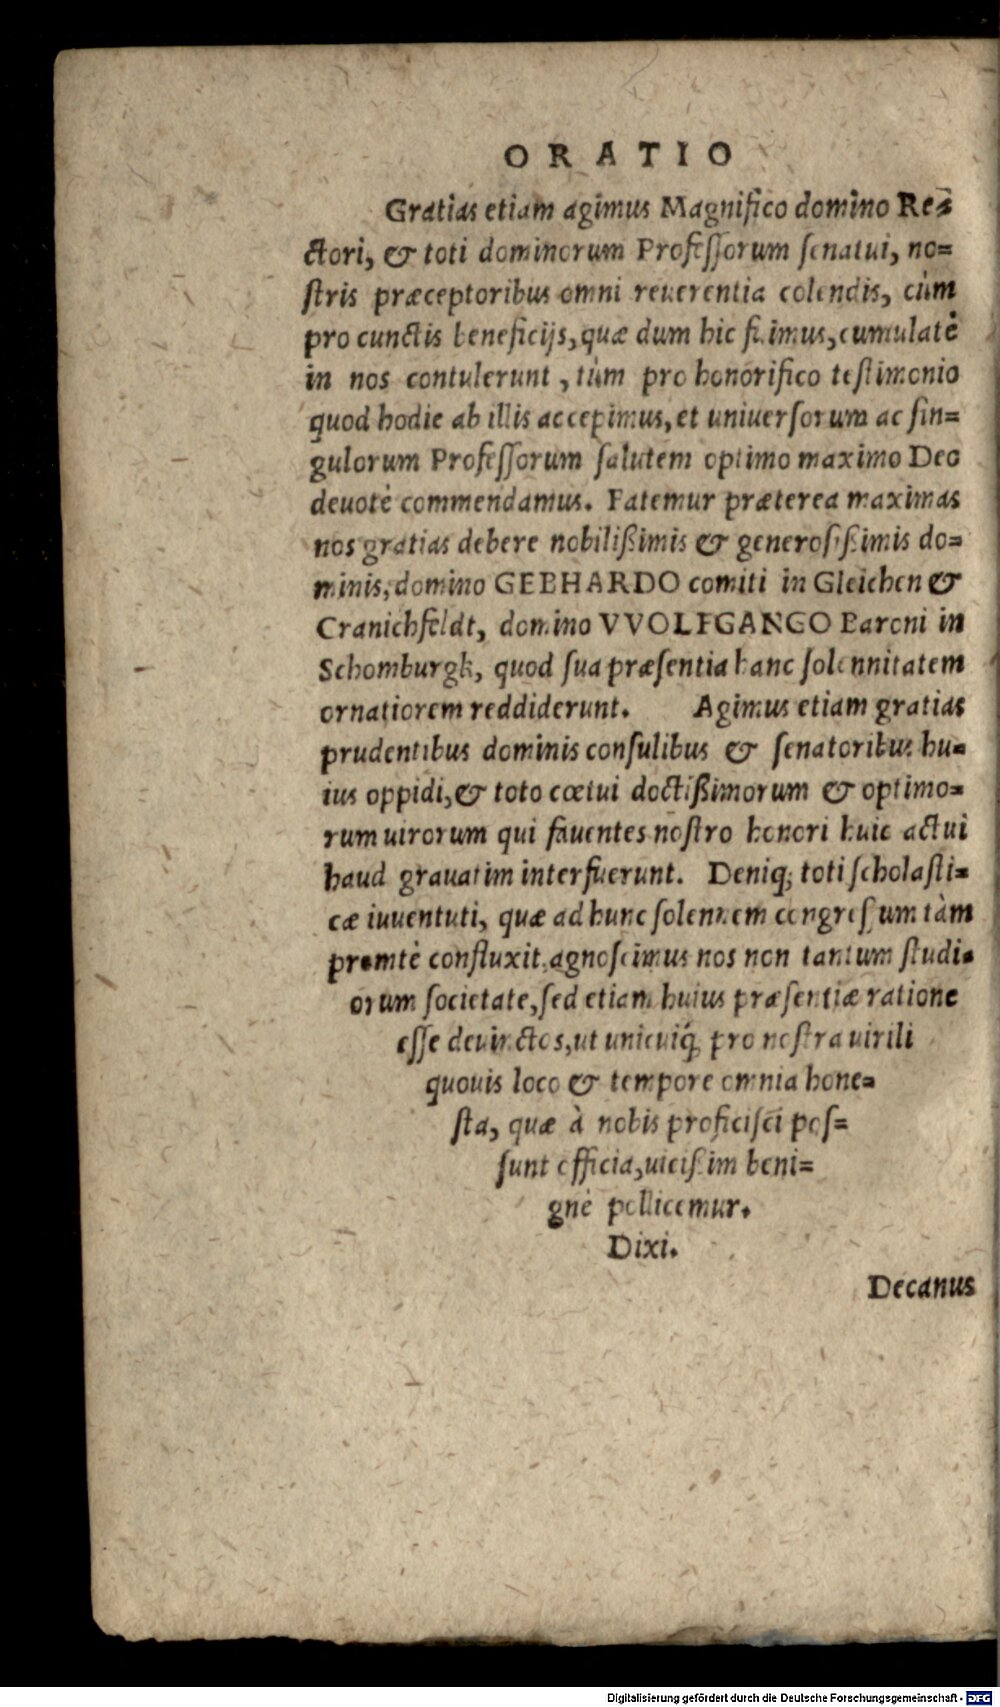 ORATIO
Gratias etiam agimus Magnifico domino Re=
ctori, & toti dominorum Professorum senatui, no=
stris præceptoribus omni reuerentia colendis, cùm
pro cunctis beneficijs, quæ dum hic fuimus, cumulatè
in nos contulerunt, tùm pro honorifico testimonio
quod hodie ab illis accepimus, et uniuersorum ac sin=
gulorum Professorum salutem optimo maximo Deo
deuotè commendamus. Fatemur præterea maximas
nos gratias debere nobilißimis & generosißimis do=
minis, domino GEBHARDO comiti in Gleichen &
Cranichfeldt, domino VVOLFGANGO Baroni in
Schomburgk, quod sua præsentia hanc solennitatem
ornatiorem reddiderunt. Agimus etiam gratias
prudentibus dominis consulibus & senatoribus hu=
ius oppidi, & toto cœtui doctißimorum & optimo=
rum uirorum qui fauentes nostro honori huic actui
haud grauatim interfuerunt. Deniq; toti scholasti=
cæ iuuentuti, quæ ad hunc solennem congressum tàm
promtè confluxit, agnoscimus nos non tantum studi=
orum societate, sed etiam huius præsentiæ ratione
esse deuinctos, ut unicuiq; pro nostra uirili
quouis loco & tempore omnia hone=
sta, quæ à nobis proficisci pos=
sunt officia, uicißim beni=
gnè pollicemur.
Dixi.
Decanus
Digitalisierung gefördert durch die Deutsche Forschungsgemeinschaft - DFG